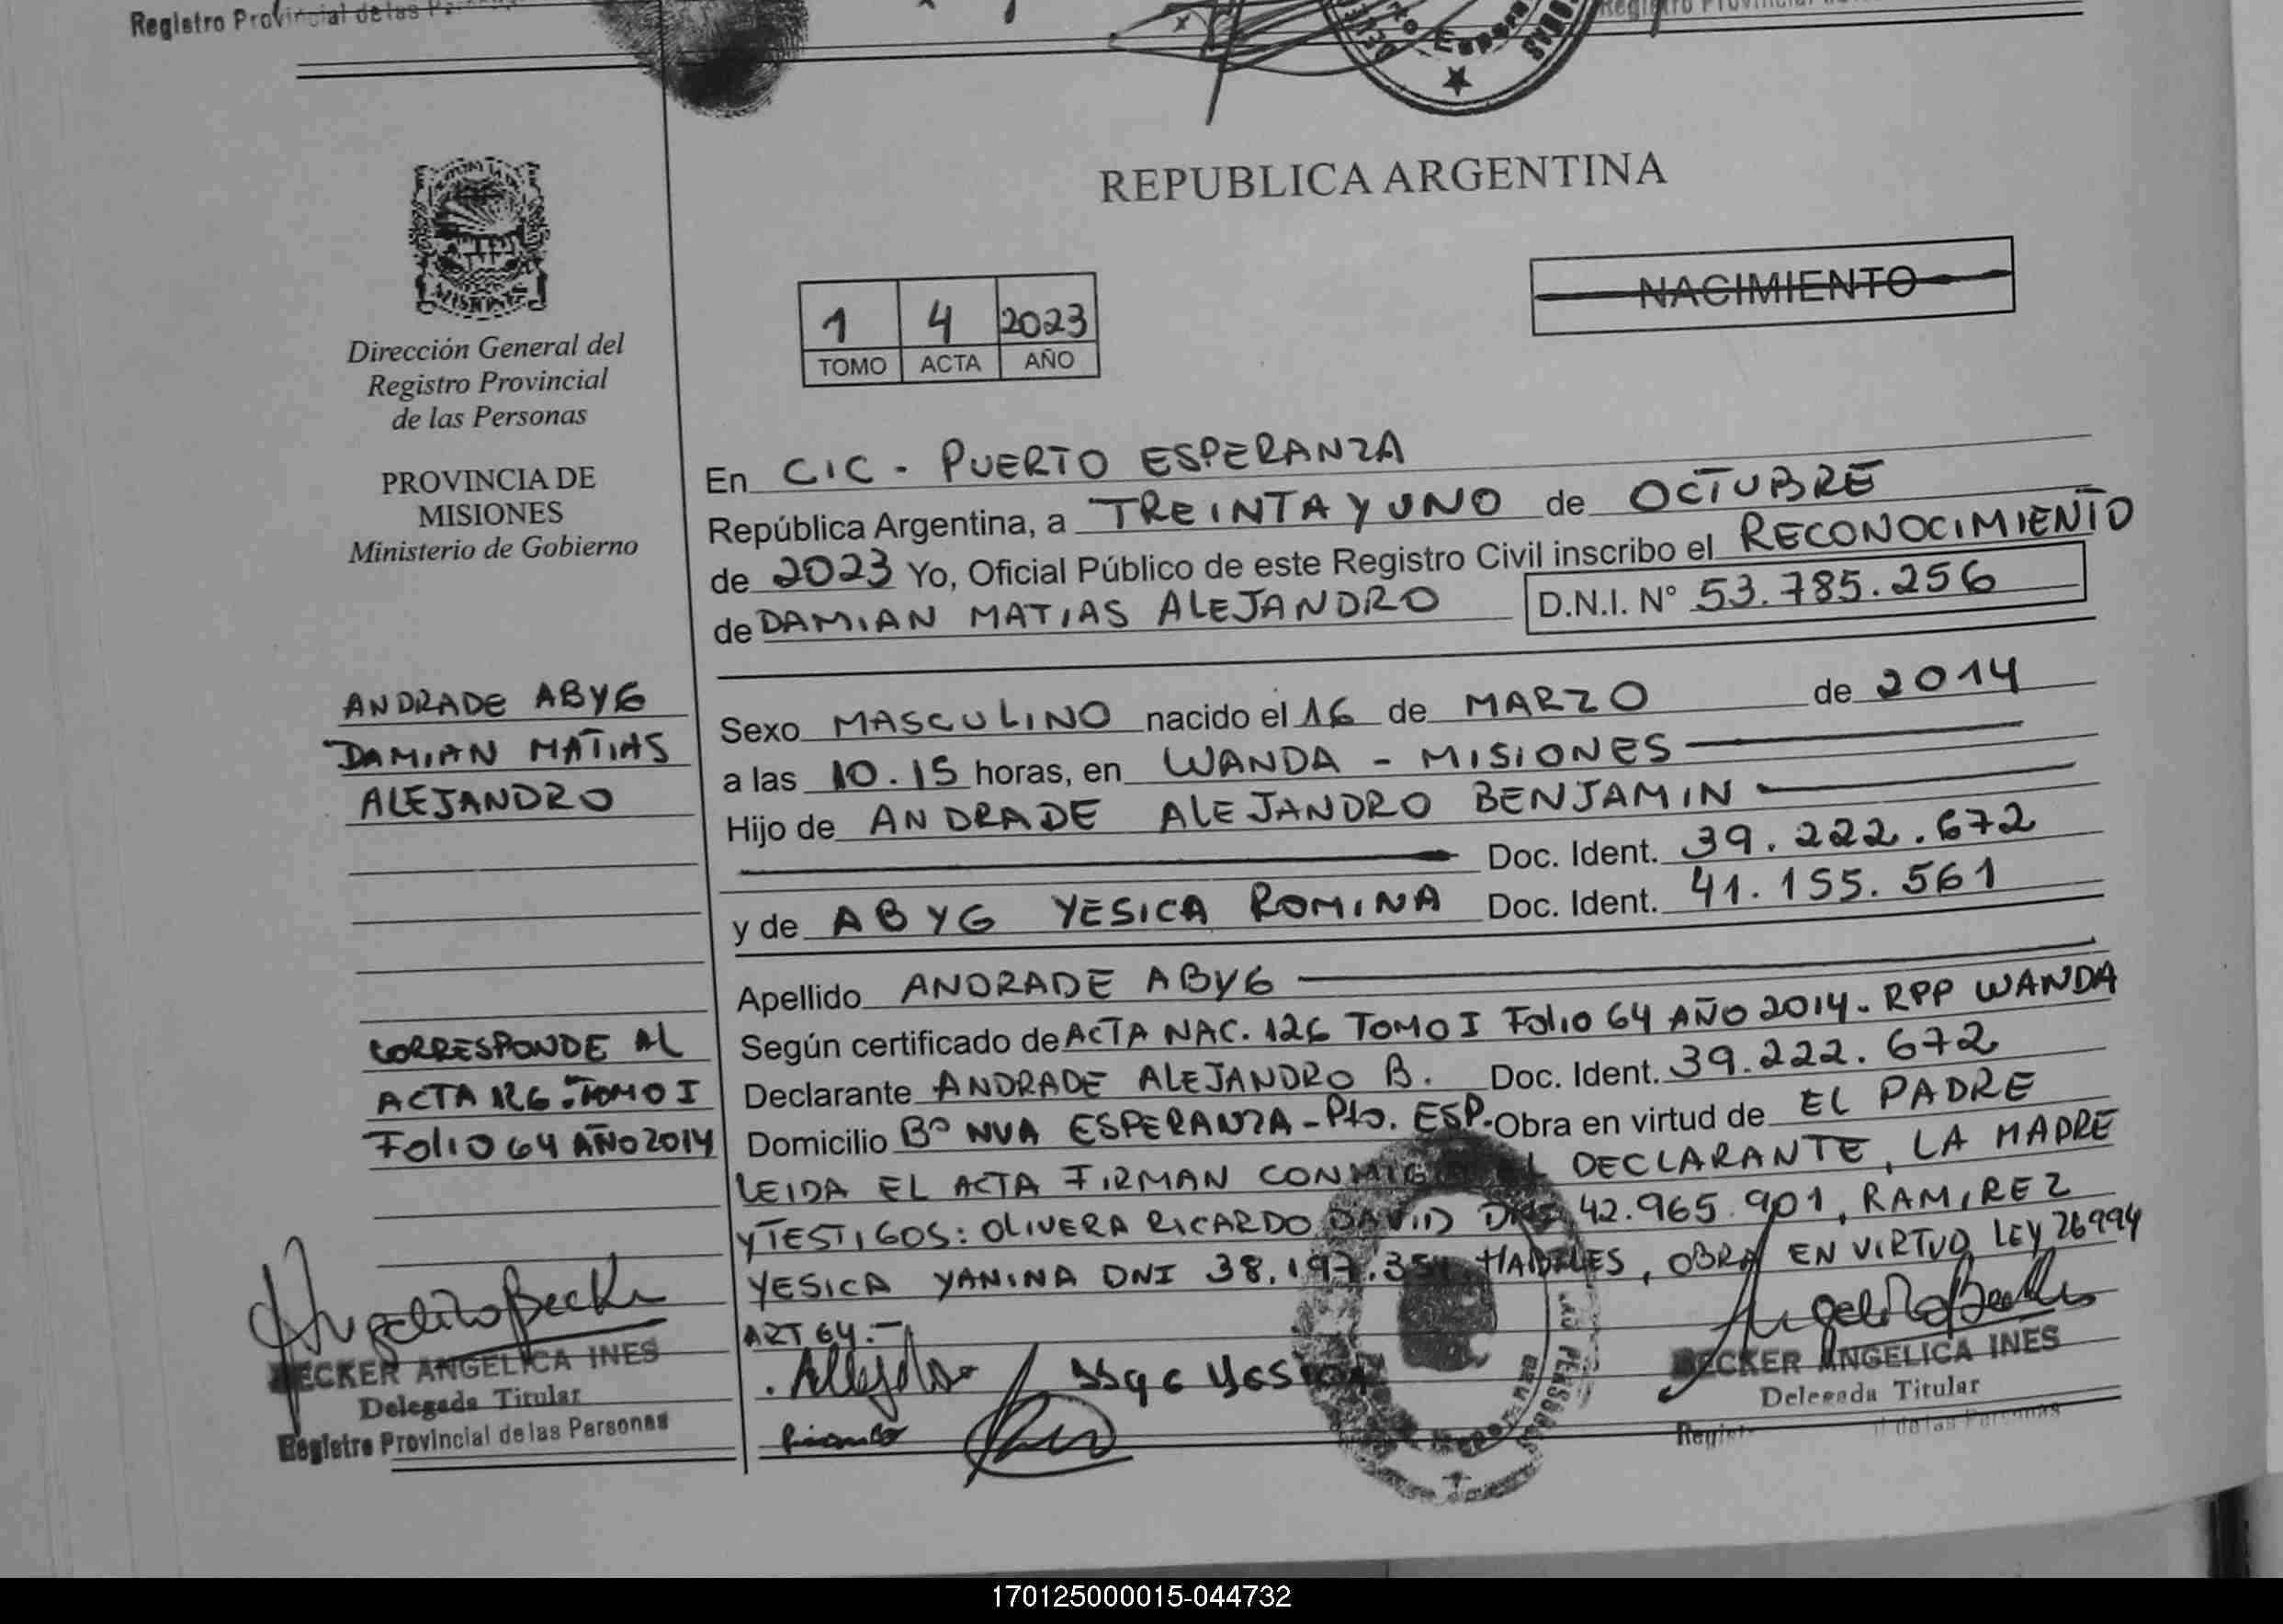 Registro Provincial de las
REPUBLICA ARGENTINA
MISIONES
Dirección General del
Registro Provincial
de las Personas
PROVINCIA DE
MISIONES
Ministerio de Gobierno
1 4 2023
TOMO ACTA AÑO
NACIMIENTO
En CIC - PUERTO ESPERANZA
República Argentina, a TREINTA Y UNO de OCTUBRE
de 2023 Yo, Oficial Público de este Registro Civil inscribo el RECONOCIMIENTO
de DAMIAN MATIAS ALEJANDRO D.N.I. N° 53.785.256
ANDRADE ABYG
DAMIAN MATIAS
ALEJANDRO
Sexo MASCULINO nacido el 16 de MARZO de 2014
a las 10.15 horas, en WANDA - MISIONES
Hijo de ANDRADE ALEJANDRO BENJAMIN
Doc. Ident. 39.222.672
y de ABYG YESICA ROMINA Doc. Ident. 41.155.561
Apellido ANDRADE ABYG
Según certificado de ACTA NAC. 126 TOMO I Folio 64 AÑO 2014. RPP WANDA
Declarante ANDRADE ALEJANDRO B. Doc. Ident. 39.222.672
Domicilio B° NVA ESPERANZA - Pto. ESP. Obra en virtud de EL PADRE
LEIDA EL ACTA FIRMAN CONMIGO EL DECLARANTE, LA MADRE
Y TESTIGOS: OLIVERA RICARDO DAVID DNI 42.965.901, RAMIREZ
YESICA YANINA DNI 38.197.354 HABILES, OBRA EN VIRTUD LEY 26994
ART 64.-
CORRESPONDE AL
ACTA 126. TOMO I
Folio 64 AÑO 2014
BECKER ANGELICA INES
Delegada Titular
Registro Provincial de las Personas
BECKER ANGELICA INES
Delegada Titular
170125000015-044732